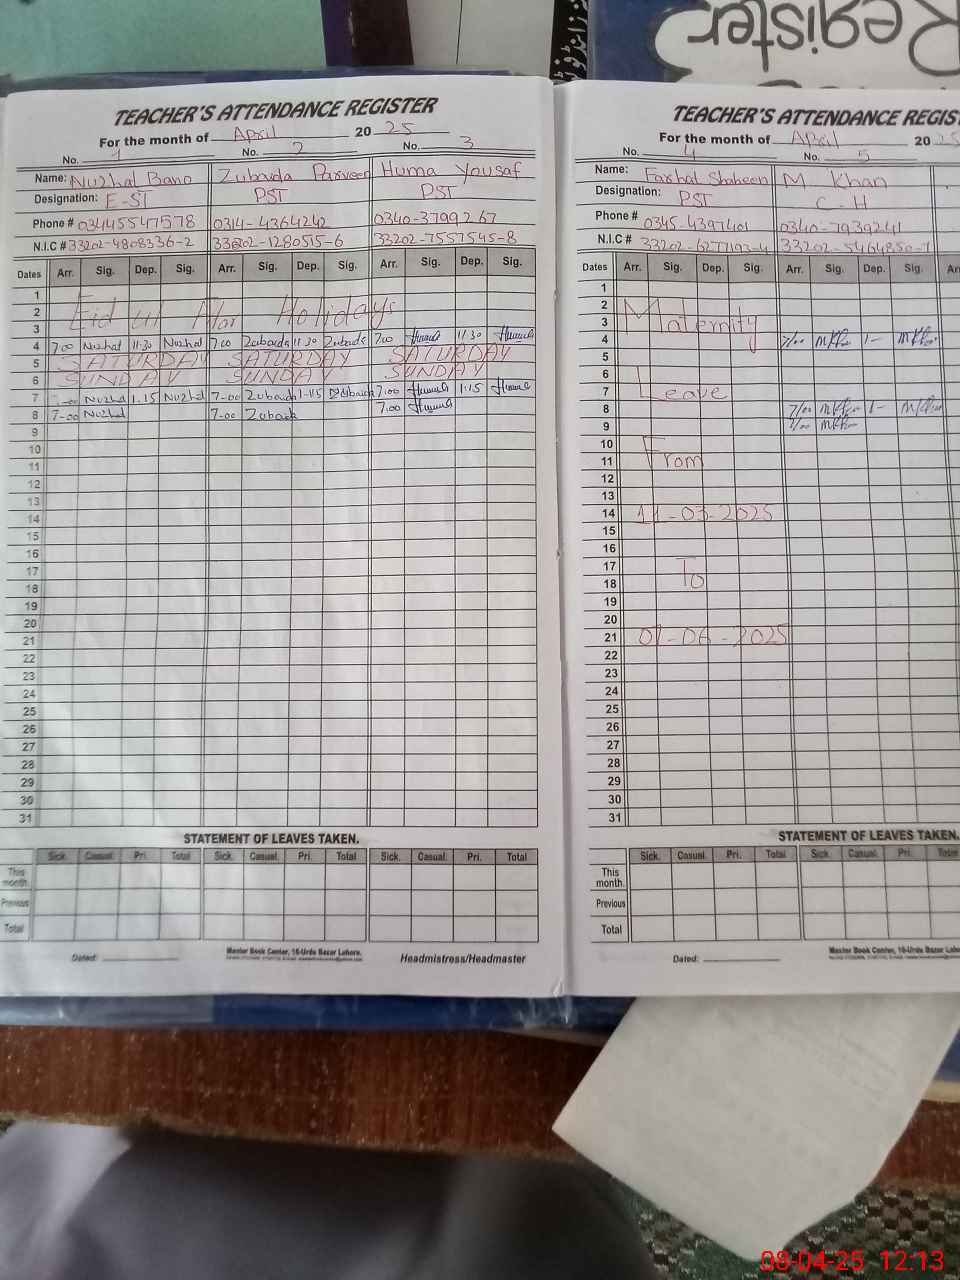 Register
TEACHER'S ATTENDANCE REGISTER
For the month of April 20 25
No. 1 No. 2 No. 3
Name: Nuzhat Bano Zubaida Parveen Huma Yousaf
Designation: E-ST PST PST
Phone # 03445547578 0314-4364242 0340-3799267
N.I.C # 33202-4808336-2 33202-1280515-6 33202-7557545-8
Dates Arr. Sig. Dep. Sig. Arr. Sig. Dep. Sig. Arr. Sig. Dep. Sig.
1
2 Eid ul Holidays
3
4 7.00 Nuzhat 11.30 Nuzhat 7.00 Zubaida 11.30 Zubaida 7.00 Huma 11.30 Huma
5 SATURDAY SATURDAY SATURDAY
6 SUNDAY SUNDAY SUNDAY
7 7-00 Nuzhat 1.15 Nuzhat 7-00 Zubaida 1-15 Zubaida 7.00 Huma 1.15 Huma
8 7-00 Nuzhat 7-00 Zubaida 7.00 Huma
9
10
11
12
13
14
15
16
17
18
19
20
21
22
23
24
25
26
27
28
29
30
31
STATEMENT OF LEAVES TAKEN.
Sick. Casual. Pri. Total Sick. Casual. Pri. Total Sick. Casual. Pri. Total
This month.
Previous
Total
Dated:
Master Book Center, 16-Urdu Bazar Lahore.
Headmistress/Headmaster
TEACHER'S ATTENDANCE REGIS
For the month of April 20 25
No. 4 No. 5
Name: Farhat Shaheen M Khan
Designation: PST C-H
Phone # 0345-4397401 0340-7939241
N.I.C # 33202-6277193-4 33202-5464850-7
Dates Arr. Sig. Dep. Sig. Arr. Sig. Dep. Sig. Arr
1
2
3 Maternity
4 7/00 1-
5
6
7 Leave
8 7/00 1-
9 7/00
10
11 From
12
13
14 11-03-2025
15
16
17
18 To
19
20
21 07-06-2025
22
23
24
25
26
27
28
29
30
31
STATEMENT OF LEAVES TAKEN.
Sick. Casual. Pri. Total Sick. Casual. Pri. Total
This month.
Previous
Total
Dated:
Master Book Center, 16-Urdu Bazar Laho
08-04-25 12:13